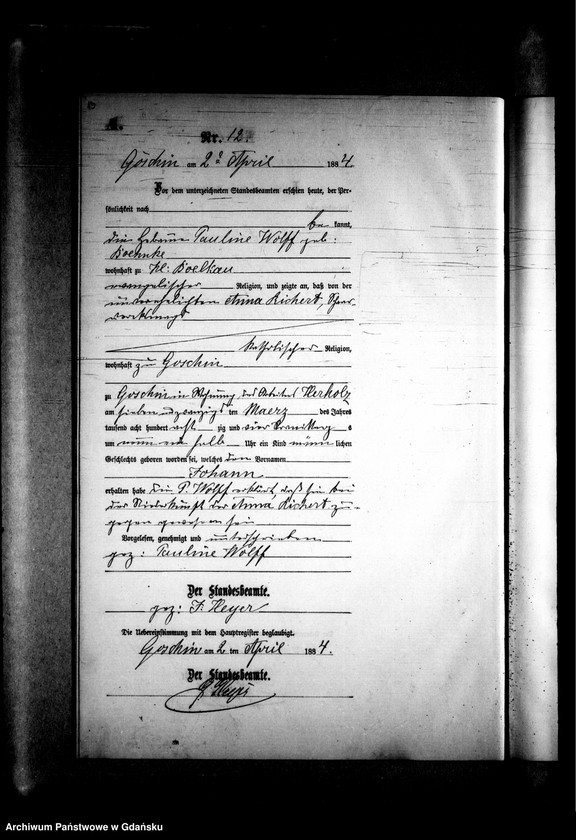 A.
Nr. 12.
Goschin am 2. April 1884.
Vor dem unterzeichneten Standesbeamten erschien heute, der Per-
sönlichkeit nach
be kannt,
die Hebamme Pauline Wolff geb:
wohnhaft zu Kl: Boelkau
evangelischer Religion, und zeigte an, daß von der
unverehelichten Anna Richert,
katholischer Religion,
wohnhaft zu Goschin
zu Goschin in Wohnung des Arbeiters Herholz
am sieben und zwanzigsten Maerz des Jahres
tausend acht hundert acht zig und vier Vormittags
um neun ein halb Uhr ein Kind männlichen
Geschlechts geboren worden sei, welches den Vornamen
Johann
erhalten habe die P. Wolff erklärt, daß sie bei
der Niederkunft der Anna Richert zu-
gegen gewesen sei
Vorgelesen, genehmigt und unterschrieben
gez: Pauline Wolff
Der Standesbeamte.
gez: F. Heyer
Die Uebereinstimmung mit dem Hauptregister beglaubigt.
Goschin am 2. ten April 1884.
Der Standesbeamte.
Archiwum Państwowe w Gdańsku